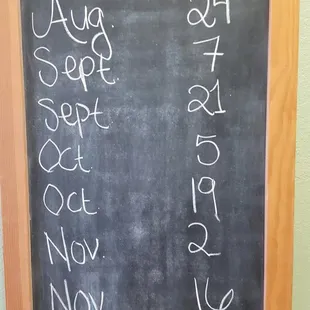 Aug. 24
Sept. 7
Sept 21
Oct. 5
Oct. 19
Nov. 2
Nov 16